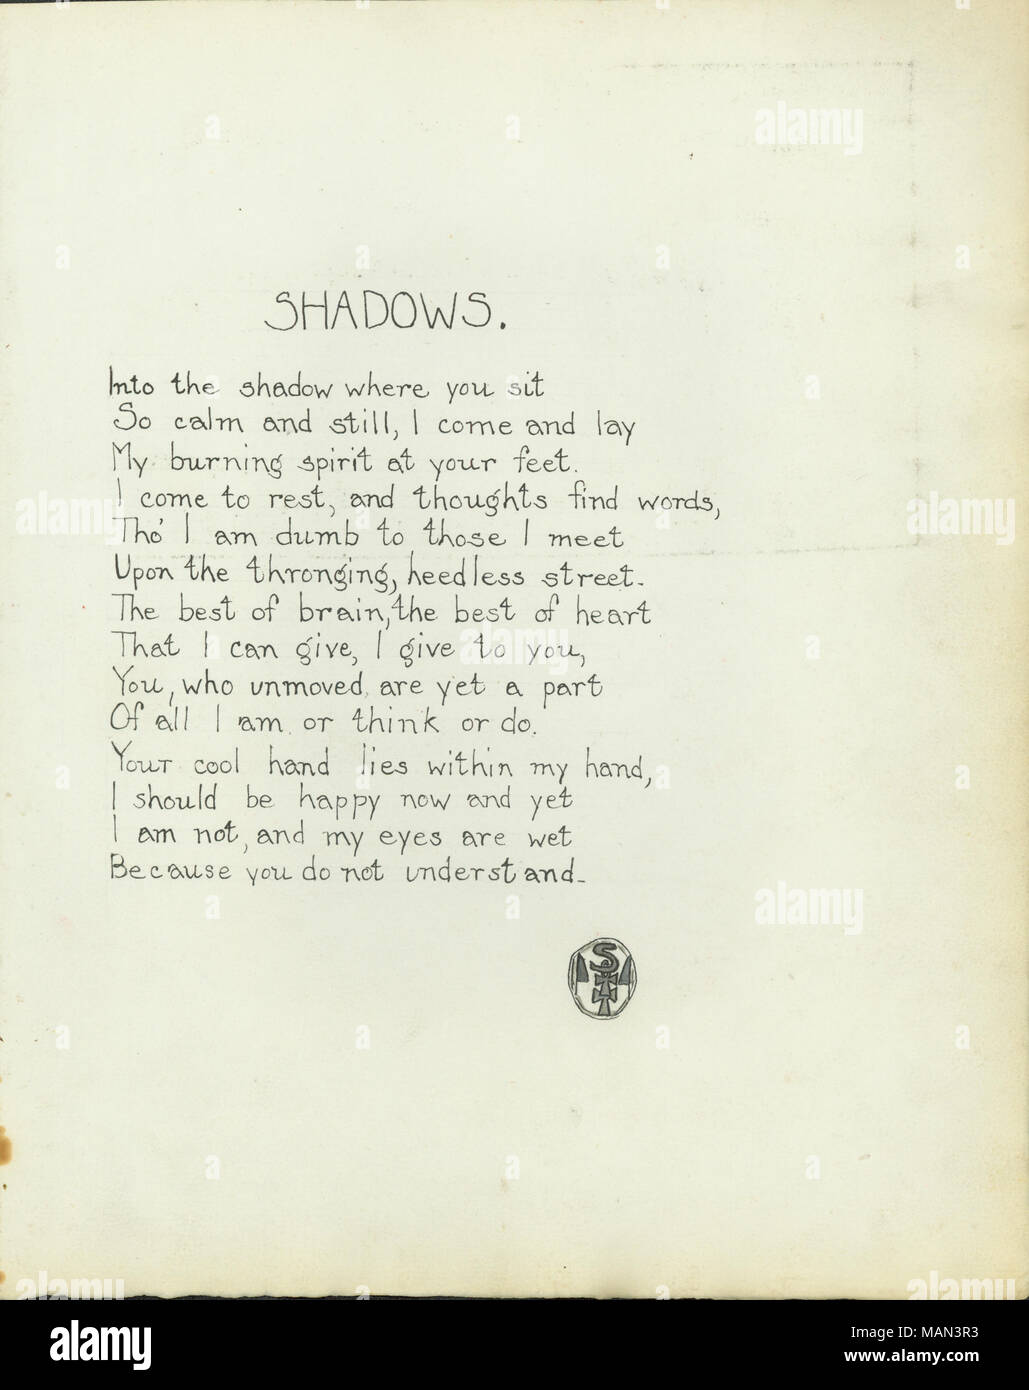 SHADOWS.
Into the shadow where you sit
So calm and still, I come and lay
My burning spirit at your feet.
I come to rest, and thoughts find words,
Tho' I am dumb to those I meet
Upon the thronging, heedless street.
The best of brain, the best of heart
That I can give, I give to you,
You, who unmoved, are yet a part
Of all I am or think or do.
Your cool hand lies within my hand,
I should be happy now and yet
I am not, and my eyes are wet
Because you do not understand.
S
alamy
Image ID: MAN3R3
www.alamy.com